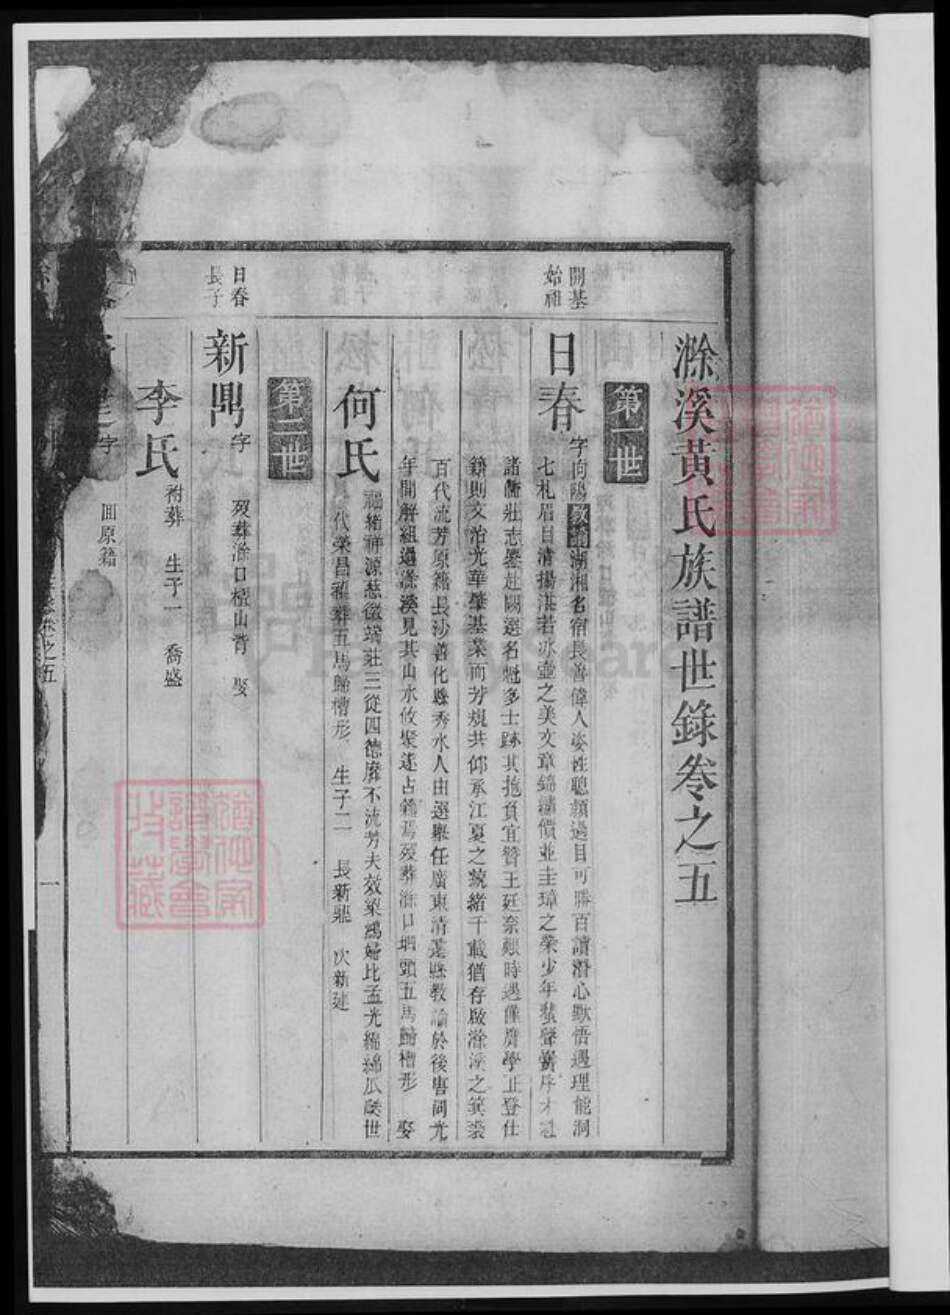 滁溪黃氏族譜世錄卷之五
第一世
開基
始祖
日春
字向陽教諭湖湘名宿長善偉人姿性聰顏過目可勝百讀潛心默悟遇理能洞
七札眉目清揚湛若冰壺之美文章錦繡價並圭璋之榮少年蜚聲黌序才
諸儕壯志鏖赴闕選名魁多士跡其抱負宜贊王廷奈艱時遇僅膺學正登仕
籍則文治光華肇基業而芳規共仰承江夏之統緒千載猶存啟滁溪之箕裘
百代流芳原籍長沙善化縣秀水人由選舉任廣東清遠縣教諭於後唐同光
年間解組過滁溪見其山水攸聚遂占籍焉歿葬滁口壩頭五馬歸槽形 娶
何氏
福緒祥源慈徽端莊三從四德靡不流芳夫效梁鴻婦比孟光綿綿瓜瓞世
代榮昌歿葬五馬歸槽形 生子二 長新鼎 次新建
第二世
日春
長子
新鼎
字 歿葬滁口 山背 娶
李氏
祔葬 生子一 喬盛
字 回原籍
卷之五
一